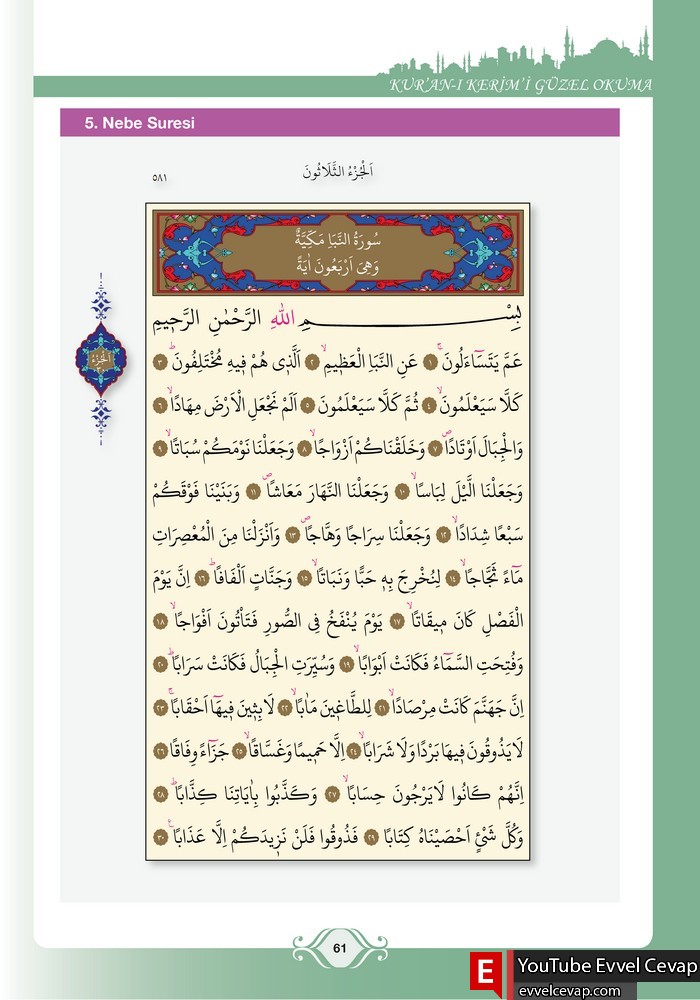 KUR’AN-I KERİM’İ GÜZEL OKUMA
5. Nebe Suresi
اَلْجُزْءُ الثَّلَاثُونَ
٥٨١
سُورَةُ النَّبَاِ مَكِّيَّةٌ
وَهِيَ اَرْبَعُونَ اٰيَةً
اَلْجُزْءُ
بِسْمِ اللّٰهِ الرَّحْمٰنِ الرَّح۪يمِ
عَمَّ يَتَسَٓاءَلُونَۚ ﴿١﴾ عَنِ النَّبَاِ الْعَظ۪يمِۙ ﴿٢﴾ اَلَّذ۪ي هُمْ ف۪يهِ مُخْتَلِفُونَۜ ﴿٣﴾
كَلَّا سَيَعْلَمُونَۙ ﴿٤﴾ ثُمَّ كَلَّا سَيَعْلَمُونَ ﴿٥﴾ اَلَمْ نَجْعَلِ الْاَرْضَ مِهَادًاۙ ﴿٦﴾
وَالْجِبَالَ اَوْتَادًاۖ ﴿٧﴾ وَخَلَقْنَاكُمْ اَزْوَاجًاۙ ﴿٨﴾ وَجَعَلْنَا نَوْمَكُمْ سُبَاتًاۙ ﴿٩﴾
وَجَعَلْنَا الَّيْلَ لِبَاسًاۙ ﴿١٠﴾ وَجَعَلْنَا النَّهَارَ مَعَاشًاۖ ﴿١١﴾ وَبَنَيْنَا فَوْقَكُمْ
سَبْعًا شِدَادًاۙ ﴿١٢﴾ وَجَعَلْنَا سِرَاجًا وَهَّاجًاۖ ﴿١٣﴾ وَاَنْزَلْنَا مِنَ الْمُعْصِرَاتِ
مَٓاءً ثَجَّاجًاۙ ﴿١٤﴾ لِنُخْرِجَ بِه۪ حَبًّا وَنَبَاتًاۙ ﴿١٥﴾ وَجَنَّاتٍ اَلْفَافًاۜ ﴿١٦﴾ اِنَّ يَوْمَ
الْفَصْلِ كَانَ م۪يقَاتًاۙ ﴿١٧﴾ يَوْمَ يُنْفَخُ فِي الصُّورِ فَتَأْتُونَ اَفْوَاجًاۙ ﴿١٨﴾
وَفُتِحَتِ السَّمَٓاءُ فَكَانَتْ اَبْوَابًاۙ ﴿١٩﴾ وَسُيِّرَتِ الْجِبَالُ فَكَانَتْ سَرَابًاۜ ﴿٢٠﴾
اِنَّ جَهَنَّمَ كَانَتْ مِرْصَادًاۙ ﴿٢١﴾ لِلطَّاغ۪ينَ مَاٰبًاۙ ﴿٢٢﴾ لَابِث۪ينَ ف۪يهَٓا اَحْقَابًاۚ ﴿٢٣﴾
لَا يَذُوقُونَ ف۪يهَا بَرْدًا وَلَا شَرَابًاۙ ﴿٢٤﴾ اِلَّا حَم۪يمًا وَغَسَّاقًاۙ ﴿٢٥﴾ جَزَٓاءً وِفَاقًاۜ ﴿٢٦﴾
اِنَّهُمْ كَانُوا لَا يَرْجُونَ حِسَابًاۙ ﴿٢٧﴾ وَكَذَّبُوا بِاٰيَاتِنَا كِذَّابًاۜ ﴿٢٨﴾
وَكُلَّ شَيْءٍ اَحْصَيْنَاهُ كِتَابًا ﴿٢٩﴾ فَذُوقُوا فَلَنْ نَز۪يدَكُمْ اِلَّا عَذَابًا۟ ﴿٣٠﴾
61
E YouTube Evvel Cevap
evvelcevap.com